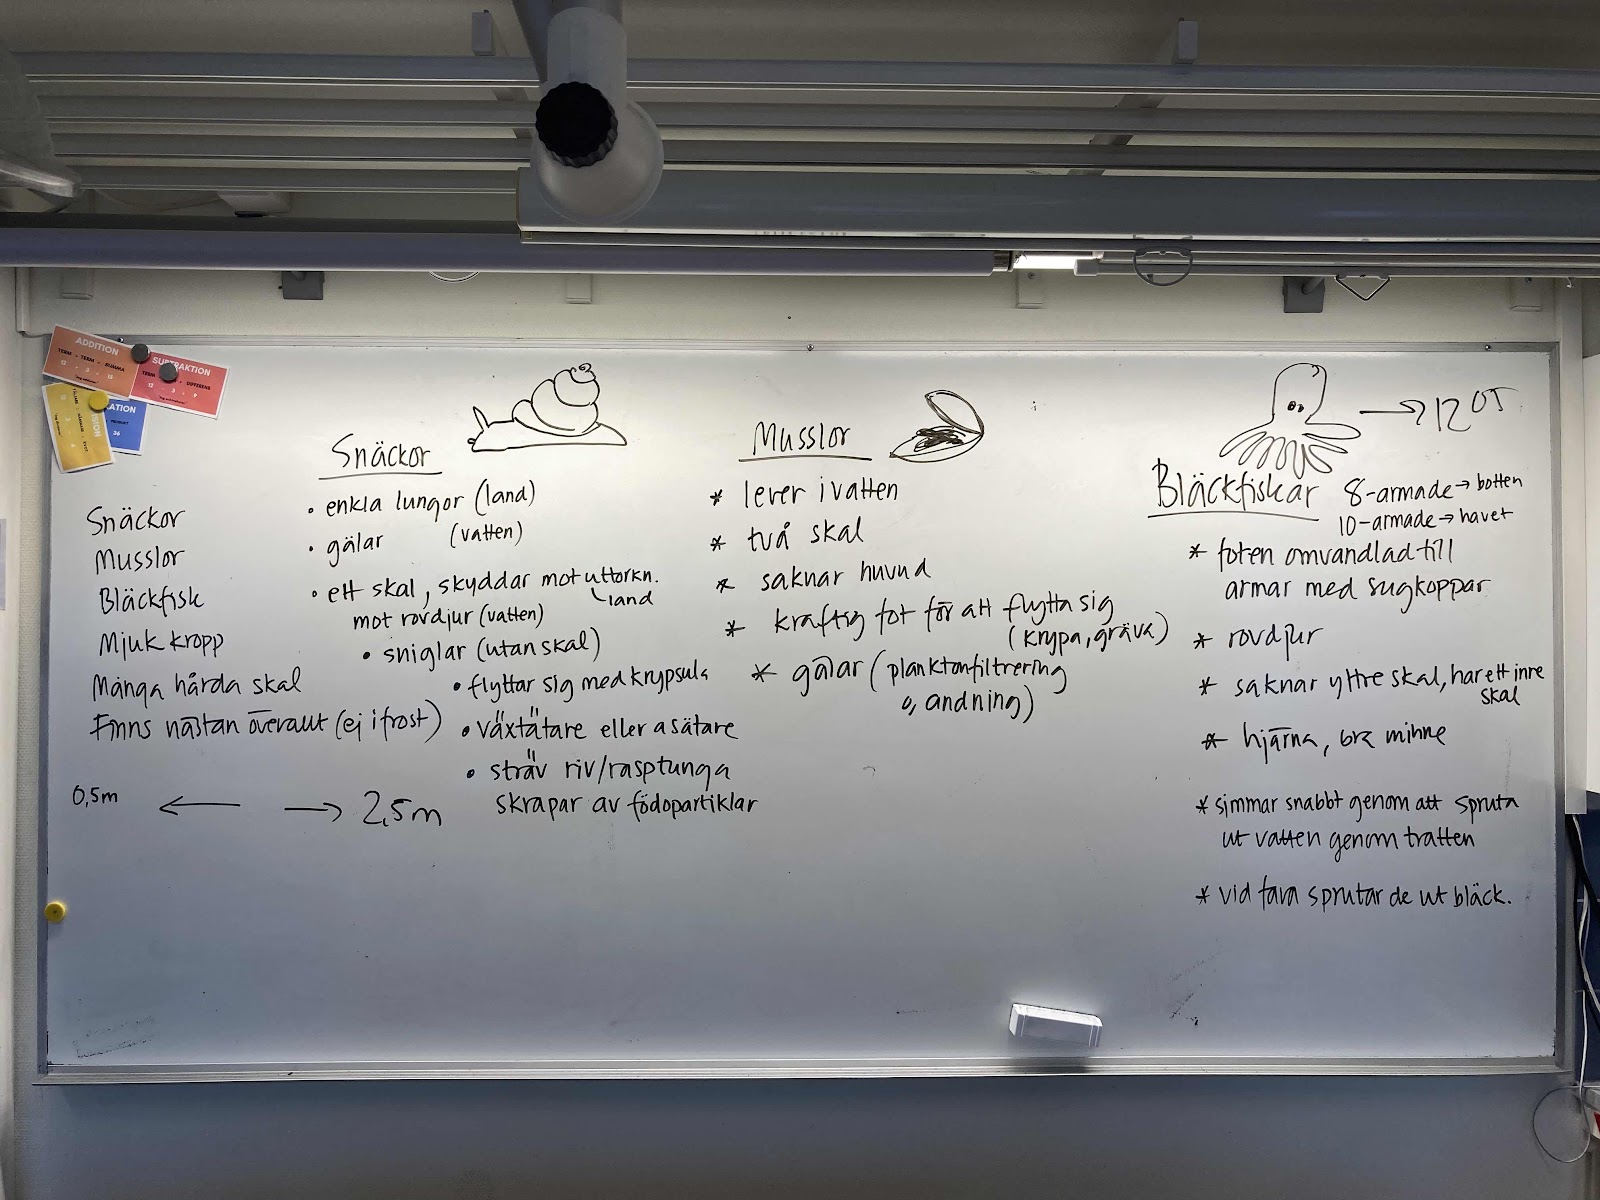 ADDITION
TERM + TERM = SUMMA
SUBTRAKTION
DIFFERENS
PRODUKT
36
Snäckor
Musslor
Bläckfisk
Mjuk kropp
Många hårda skal
Finns nästan överallt (ej i frost)
0,5m
2,5m
Snäckor
• enkla lungor (land)
• gälar (vatten)
• ett skal, skyddar mot uttorkn.
land
mot rovdjur (vatten)
• sniglar (utan skal)
• flyttar sig med krypsula
• växtätare eller asätare
• sträv riv/rasptunga
skrapar av födopartiklar
Musslor
* lever i vatten
* två skal
* saknar huvud
* kraftig fot för att flytta sig
(krypa, gräva)
* gälar (planktonfiltrering
o, andning)
Bläckfiskar
8-armade → botten
10-armade → havet
* foten omvandlad till
armar med sugkoppar
* rovdjur
* saknar yttre skal, har ett inre
skal
* hjärna, bra minne
* simmar snabbt genom att spruta
ut vatten genom tratten
* vid fara sprutar de ut bläck.